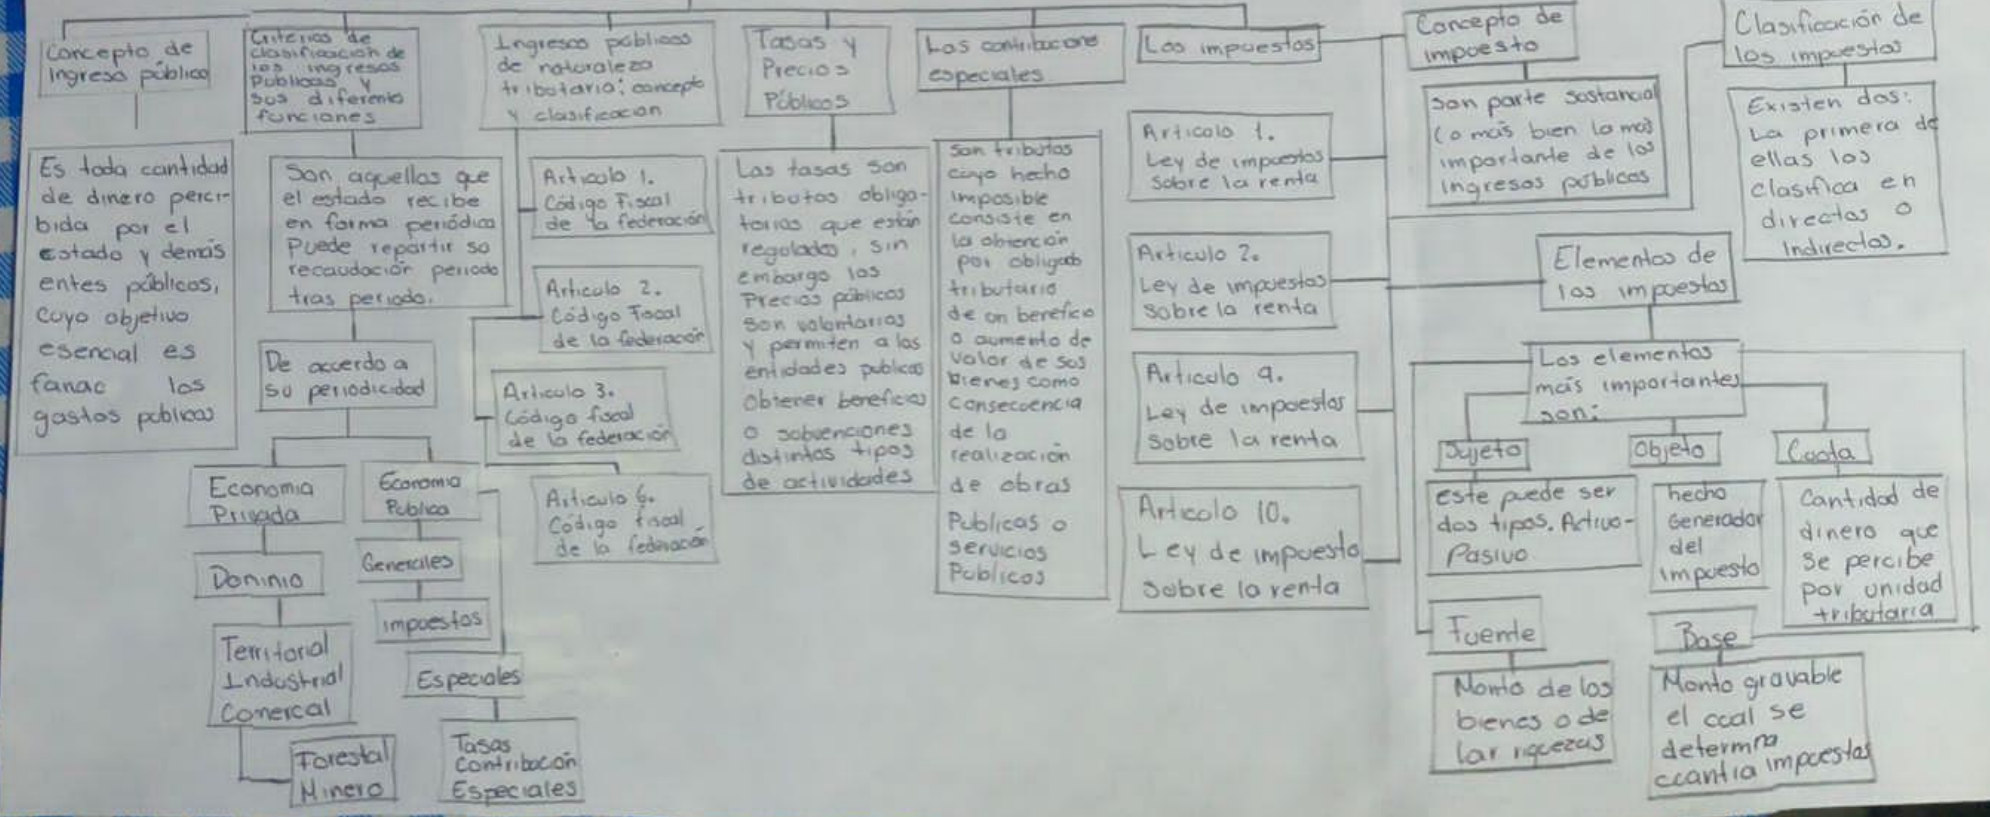 Concepto de
Ingreso público
Es toda cantidad
de dinero perci-
bida por el
Estado y demás
entes públicos,
cuyo objetivo
esencial es
fanac los
gastos publicos
Criterios de
clasificación de
los ingresos
Publicos y
sus diferente
funciones
Son aquellos que
el estado recibe
en forma periódica
Puede repartir su
recaudación periodo
tras periodo.
De acuerdo a
su periodicidad
Economia
Privada
Dominio
Territorial
Industrial
Comercal
Forestal
Minero
Economia
Publica
Generales
impuestos
Especiales
Tasas
Contribución
Especiales
Ingresos públicos
de naturaleza
tributaria: concepto
y clasificacion
Articulo 1.
Código Fiscal
de la federación
Articulo 2.
Código Fiscal
de la federación
Articulo 3.
Código fiscal
de la federación
Articulo 6.
Código fiscal
de la federación
Tasas y
Precios
Públicos
Las tasas son
tributos obliga-
torias que están
regulados, sin
embargo los
Precios públicos
son voluntarios
y permiten a las
entidades publicas
obtener beneficios
o subvenciones
distintos tipos
de actividades
Las contribucione
especiales
Son tributos
cuyo hecho
imposible
consiste en
la obtención
por obligado
tributario
de un beneficio
o aumento de
valor de sus
bienes como
consecuencia
de la
realización
de obras
Publicas o
servicios
Publicos
Los impuestos
Articulo 1.
Ley de impuestos
sobre la renta
Articulo 2.
Ley de impuestos
sobre la renta
Articulo 9.
Ley de impuestos
sobre la renta
Articulo 10.
Ley de impuesto
sobre la renta
Concepto de
impuesto
Son parte sustancial
(o más bien la mas
importante de los
ingresos públicos
Clasificación de
los impuestos
Existen dos:
La primera de
ellas los
clasifica en
directos o
Indirectos.
Elementos de
los impuestos
Los elementos
más importantes
son:
Sujeto
este puede ser
dos tipos. Activo-
Pasivo
Objeto
hecho
Generador
del
impuesto
Cuota
Cantidad de
dinero que
se percibe
por unidad
tributaria
Fuente
Monto de los
bienes o de
lar riquezas
Base
Monto gravable
el cual se
determna
ccantia impuestos